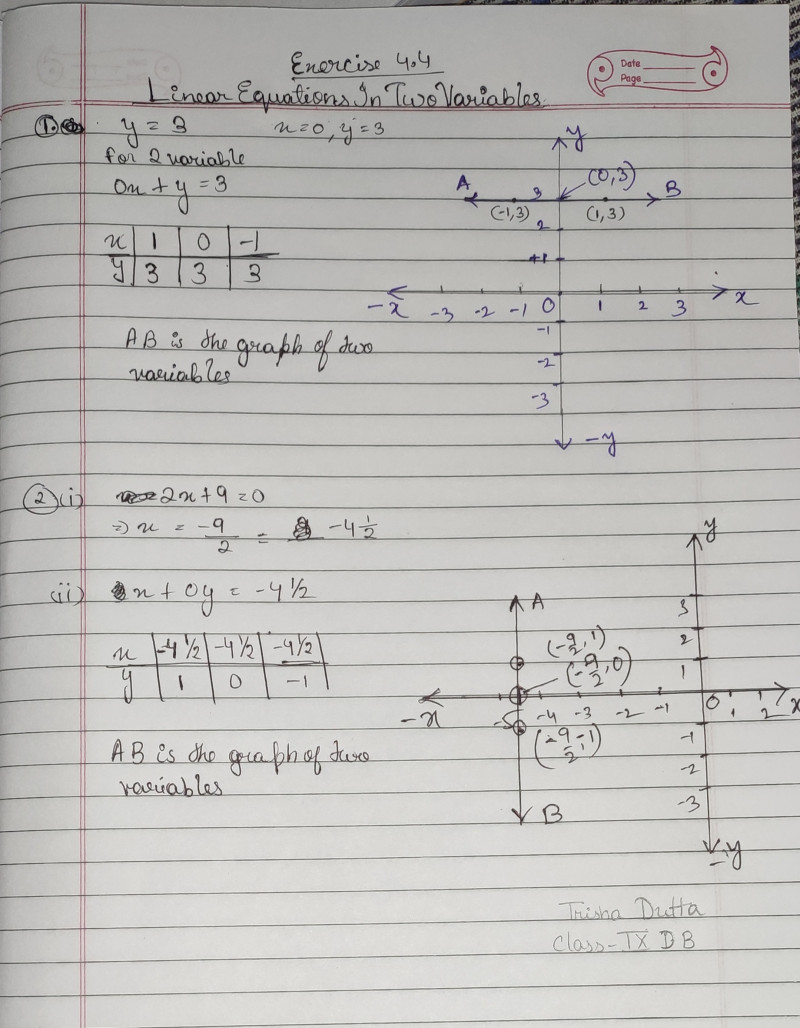 Exercise 4.4
Date
Page
Linear Equations In Two Variables
1. y = 3 x=0, y=3
for 2 variable
0x + y = 3
x | 1 | 0 | -1
y | 3 | 3 | 3
AB is the graph of two
variables
y
(0,3)
A 3 B
(-1,3) (1,3)
2
+1
-x -3 -2 -1 0 1 2 3 x
-1
-2
-3
-y
2 (i) 2x+9=0
⇒ x = -9/2 = -4 1/2
(ii) x + 0y = -4 1/2
x | -4 1/2 | -4 1/2 | -4 1/2
y | 1 | 0 | -1
AB is the graph of two
variables
y
A 3
2
(-9/2, 1)
(-9/2, 0) 1
-x -5 -4 -3 -2 -1 0 1 2 x
(-9/2, -1) -1
-2
-3
B
-y
Trisha Dutta
Class-IX D B